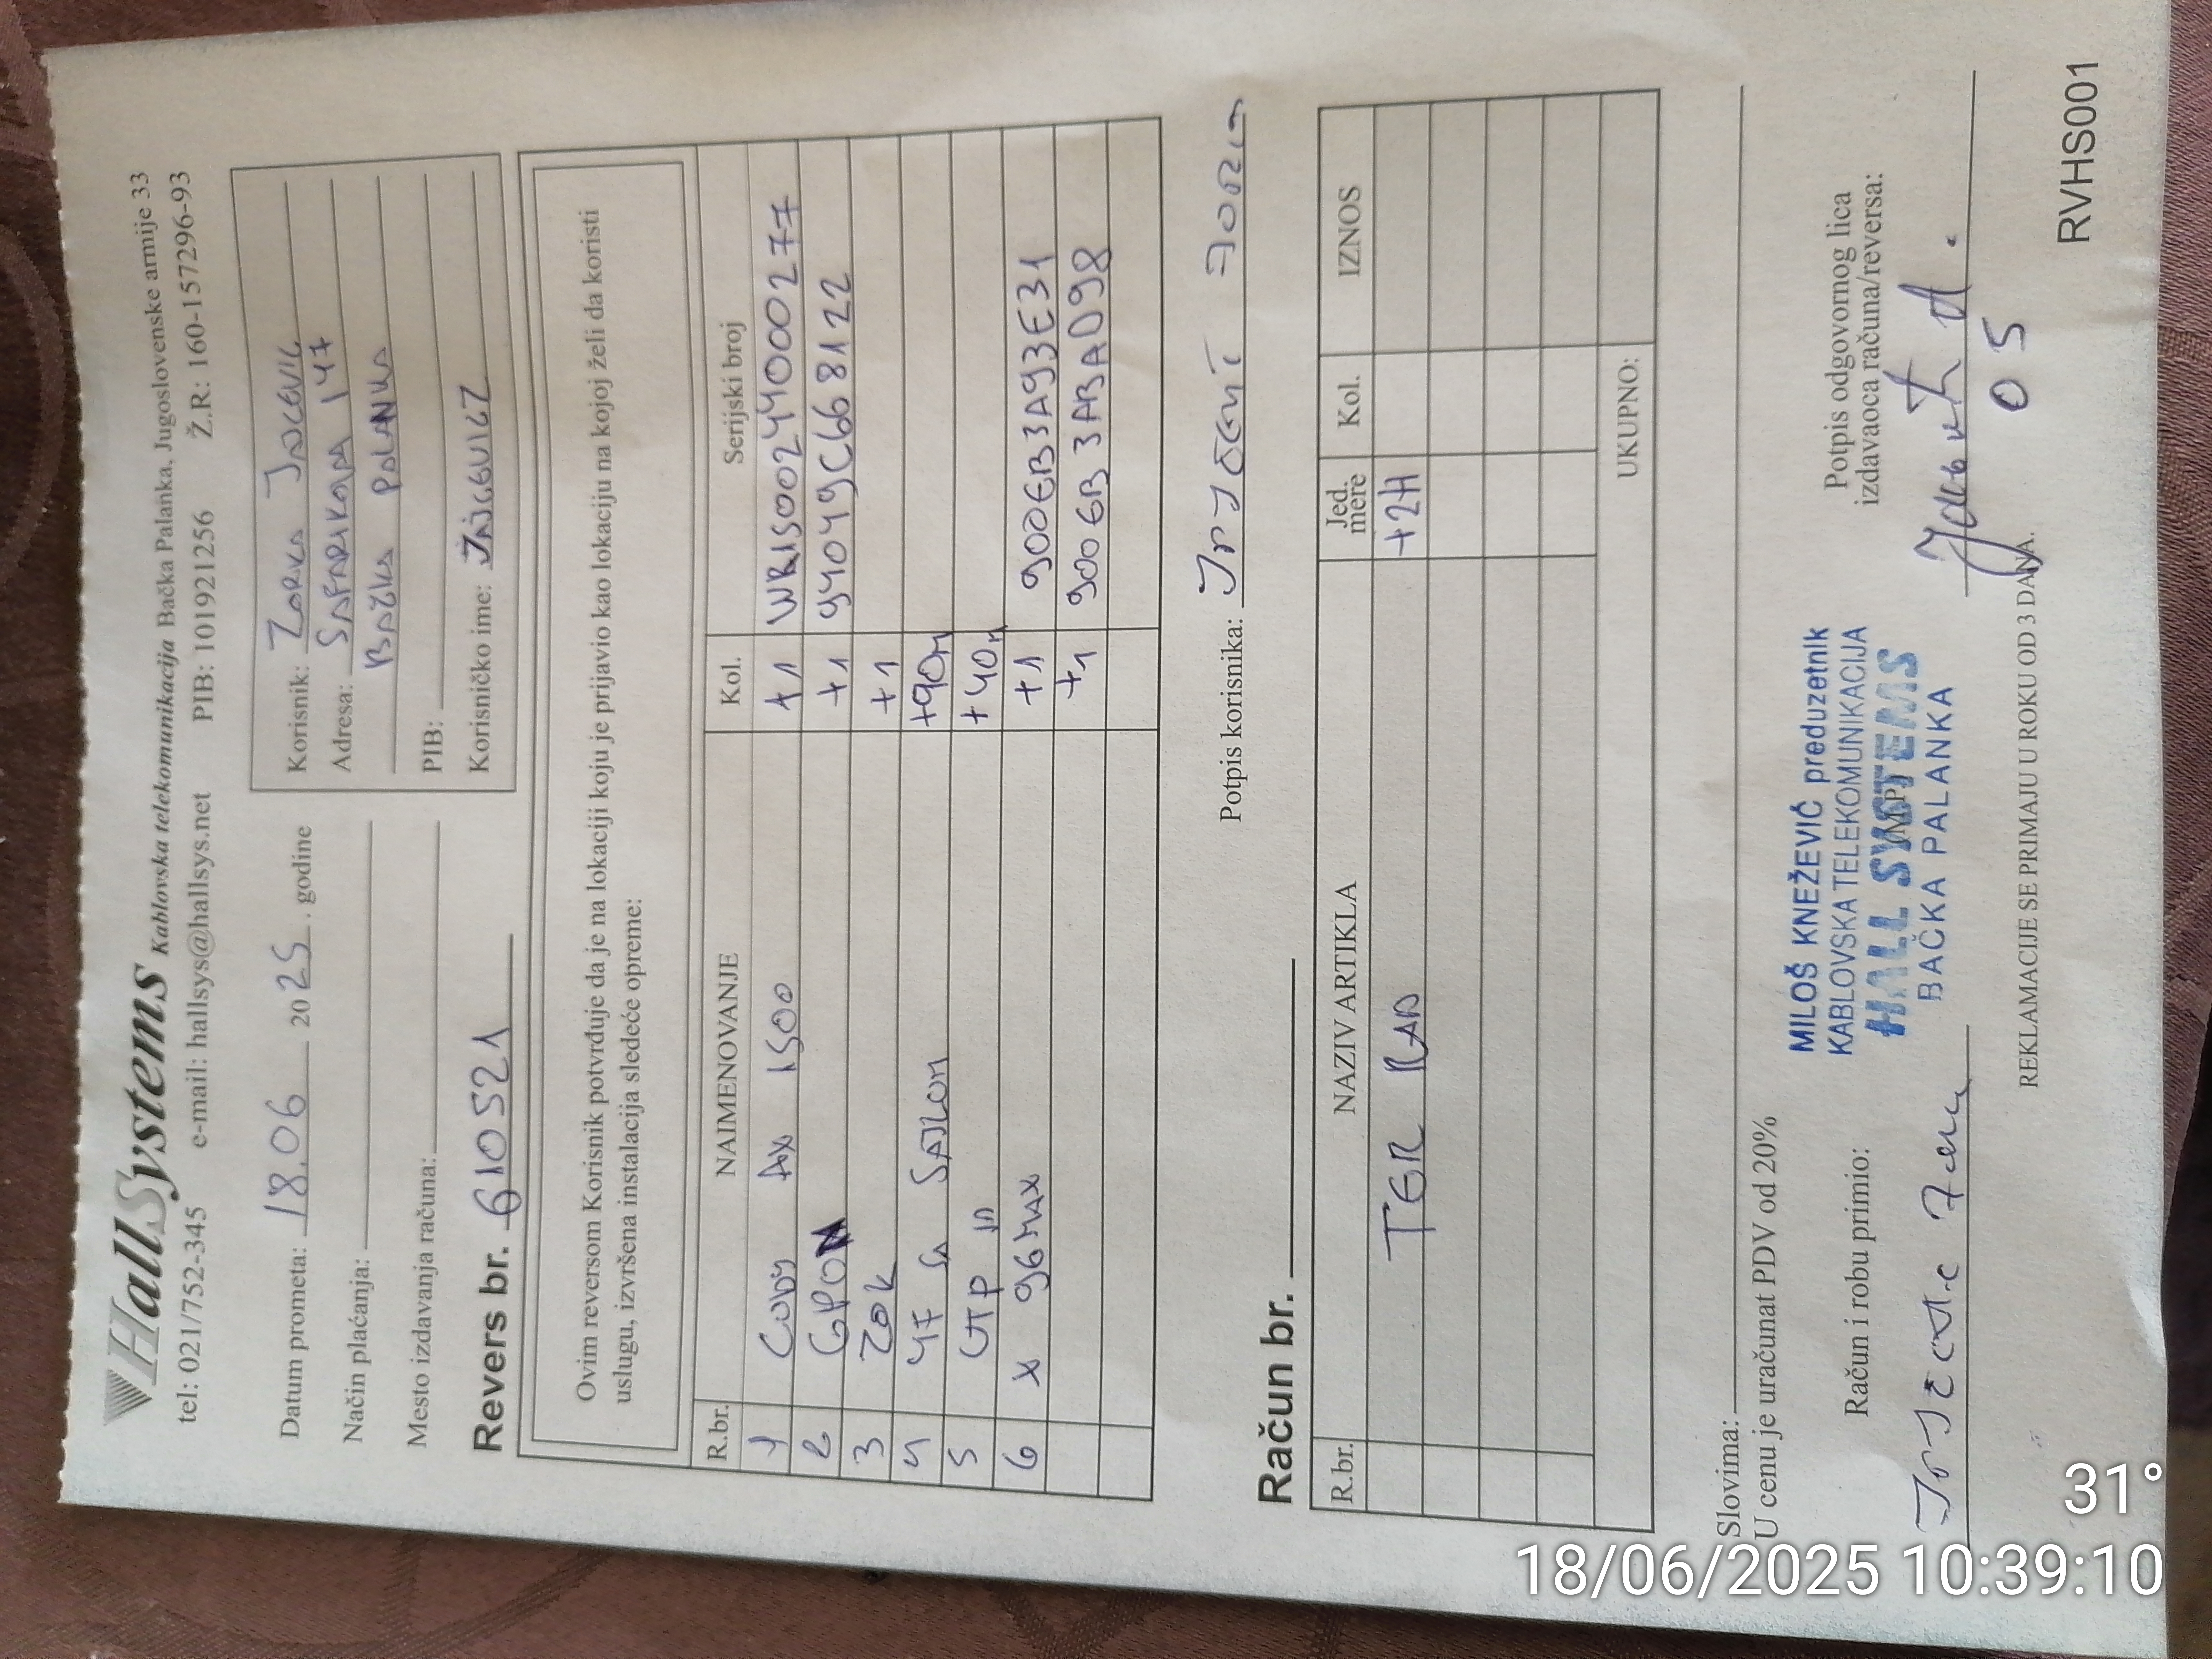 HallSystems Kablovska telekomunikacija Bačka Palanka, Jugoslovenske armije 33
tel: 021/752-345 e-mail: hallsys@hallsys.net PIB: 101921256 Ž.R: 160-157296-93
Datum prometa: 18.06 2025. godine
Način plaćanja:
Mesto izdavanja računa:
Revers br. 610521
Korisnik: ZORKA
Adresa: SAFARIKOVA 147
BAČKA PALANKA
PIB:
Korisničko ime:
Ovim reversom Korisnik potvrđuje da je na lokaciji koju je prijavio kao lokaciju na kojoj želi da koristi
uslugu, izvršena instalacija sledeće opreme:
R.br. NAIMENOVANJE Kol. Serijski broj
1 CUDY AX 1500 +1 WR1500244000277
2 GPON +1 94049C668122
3 ZOK +1
4 4F SA SAJLOM +90m
5 UTP +40m
6 X 96MAX +1 9006B3A93E31
+1 9006B3ABAD98
Potpis korisnika:
Račun br.
R.br. NAZIV ARTIKLA Jed. mere Kol. IZNOS
TER RAD +2H
UKUPNO:
Slovima:
U cenu je uračunat PDV od 20%
Račun i robu primio:
MILOŠ KNEŽEVIĆ preduzetnik
KABLOVSKA TELEKOMUNIKACIJA
HALL SYSTEMS
BAČKA PALANKA
M.P.
Potpis odgovornog lica
izdavaoca računa/reversa:
05
REKLAMACIJE SE PRIMAJU U ROKU OD 3 DANA.
RVHS001
31°
18/06/2025 10:39:10